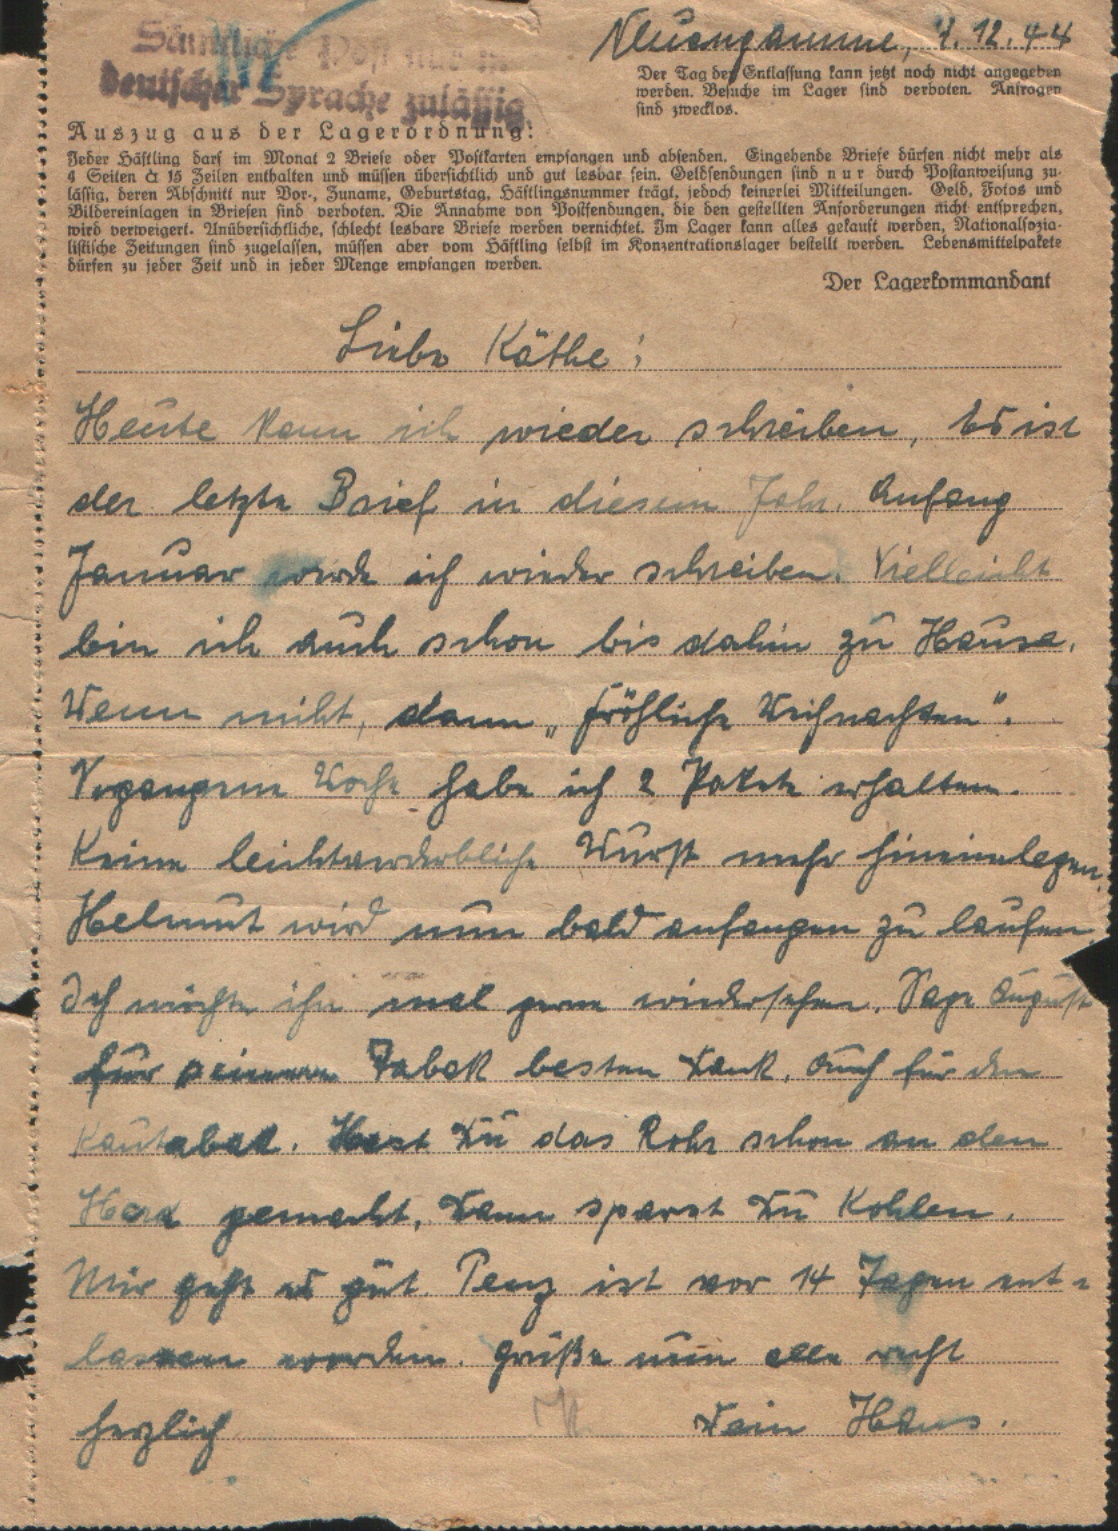 Sämtliche Post nur in
deutscher Sprache zulässig.
Neuengamme, 7.12.44
Der Tag der Entlassung kann jetzt noch nicht angegeben
werden. Besuche im Lager sind verboten. Anfragen
sind zwecklos.
Auszug aus der Lagerordnung:
Jeder Häftling darf im Monat 2 Briefe oder Postkarten empfangen und absenden. Eingehende Briefe dürfen nicht mehr als
4 Seiten à 15 Zeilen enthalten und müssen übersichtlich und gut lesbar sein. Geldsendungen sind nur durch Postanweisung zu-
lässig, deren Abschnitt nur Vor-, Zuname, Geburtstag, Häftlingsnummer trägt, jedoch keinerlei Mitteilungen. Geld, Fotos und
Bildereinlagen in Briefen sind verboten. Die Annahme von Postsendungen, die den gestellten Anforderungen nicht entsprechen,
wird verweigert. Unübersichtliche, schlecht lesbare Briefe werden vernichtet. Im Lager kann alles gekauft werden, Nationalsozia-
listische Zeitungen sind zugelassen, müssen aber vom Häftling selbst im Konzentrationslager bestellt werden. Lebensmittelpakete
dürfen zu jeder Zeit und in jeder Menge empfangen werden.
Der Lagerkommandant
Liebe Käthe!
Heute kann ich wieder schreiben, Es ist
der letzte Brief in diesem Jahr. Anfang
Januar werde ich wieder schreiben. Vielleicht
bin ich auch schon bis dahin zu Hause.
Wenn nicht, dann „fröhliche Weihnachten".
Vergangene Woche habe ich 2 Pakete erhalten.
Keine leichtverderbliche Wurst mehr hineinlegen.
Helmut wird nun bald anfangen zu laufen.
Ich möchte ihn mal gerne wiedersehen. Sage August
für seinen Tabak besten Dank. Auch für den
Kautabak. Hast Du das Rohr schon an den
Herd gemacht, Dann sparst Du Kohlen.
Mir geht es gut. Penz ist vor 14 Tagen ent-
lassen worden. Grüße nun alle recht
herzlich Dein Hans.